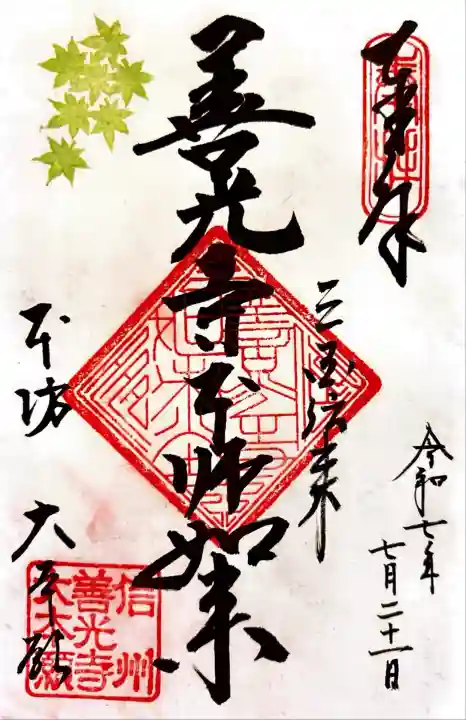 奉拝
令和七年
七月二十一日
三国傳来
善光寺本師如来
本坊 大本願
信州
善光寺
大本願